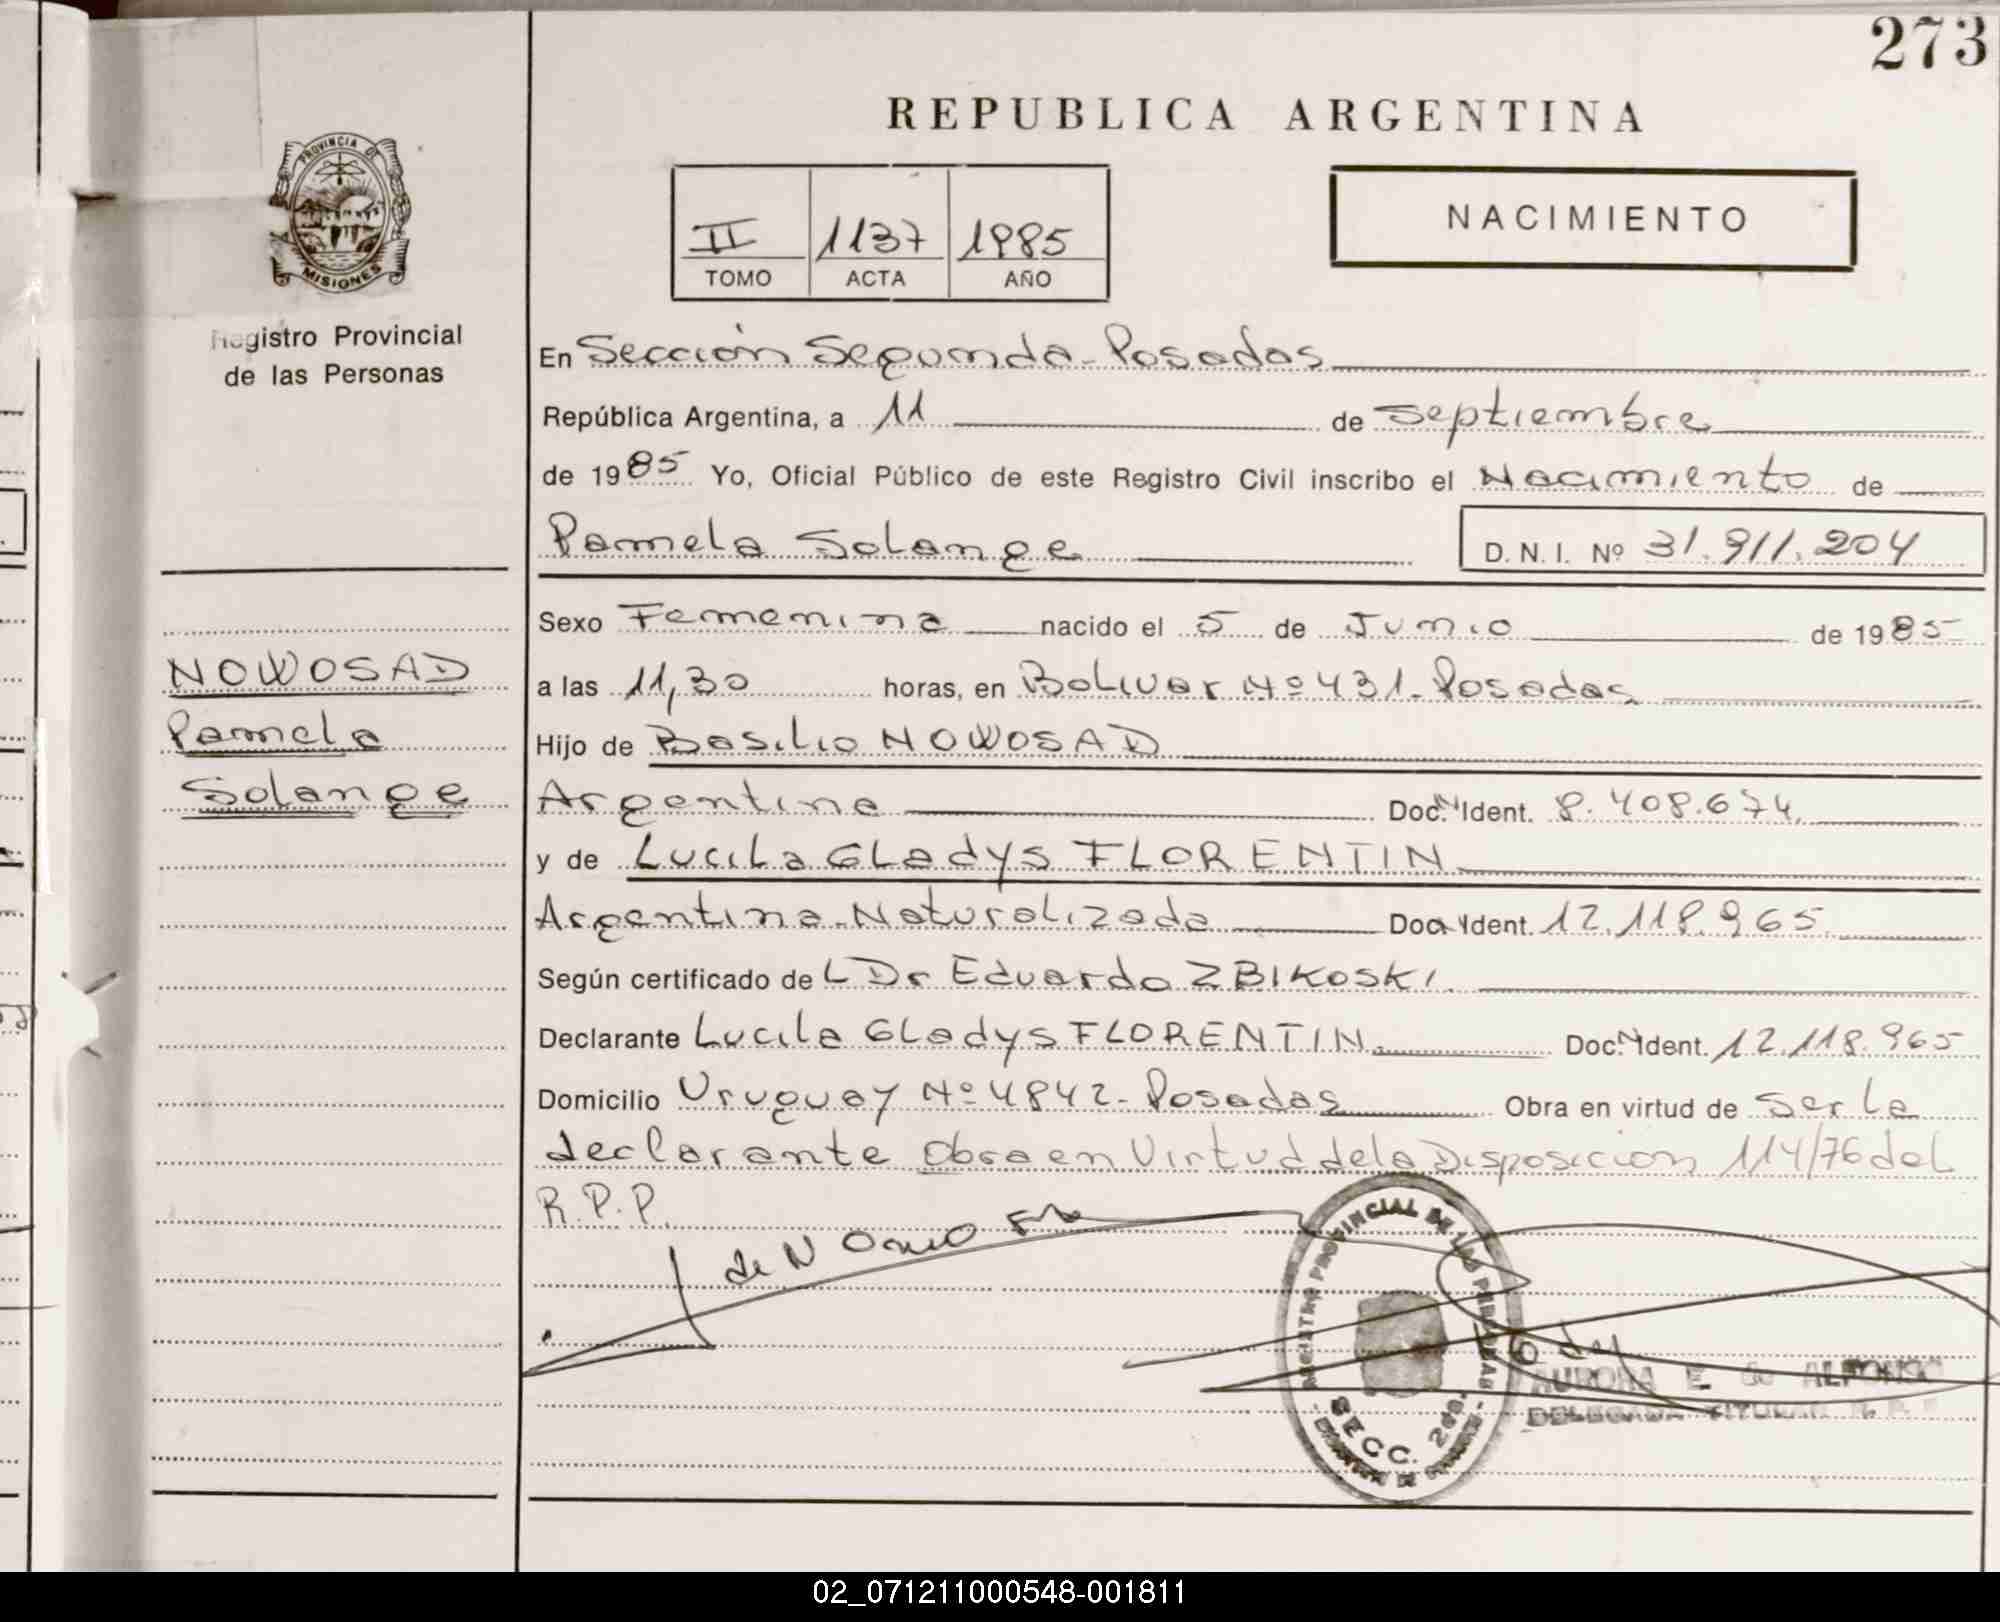 273
REPUBLICA ARGENTINA
PROVINCIA DE
MISIONES
Registro Provincial
de las Personas
II 1137 1985
TOMO ACTA AÑO
NACIMIENTO
En Sección Segunda - Posadas
República Argentina, a 11 de Septiembre
de 1985 Yo, Oficial Público de este Registro Civil inscribo el Nacimiento de
Pamela Solange D.N.I. Nº 31.911.204
Sexo Femenina nacido el 5 de Junio de 1985
NOWOSAD
Pamela
Solange
a las 11,30 horas, en Bolivar Nº 431 - Posadas
Hijo de Basilio NOWOSAD
Argentina Doc. N Ident. 8.408.674
y de Lucila Gladys FLORENTIN
Argentina - Naturalizada Doc. N Ident. 12.118.965
Según certificado del Dr Eduardo ZBIKOSKI
Declarante Lucila Gladys FLORENTIN. Doc. N Ident. 12.118.965
Domicilio Uruguay Nº 4842 - Posadas Obra en virtud de ser la
declarante Obra en Virtud de la Disposicion 114/76 del
R.P.P.
de N
REGISTRO PROVINCIAL DE LAS PERSONAS
SECC. 2da.
AURORA E. de ALFONSO
DELEGADA TITULAR
02_071211000548-001811